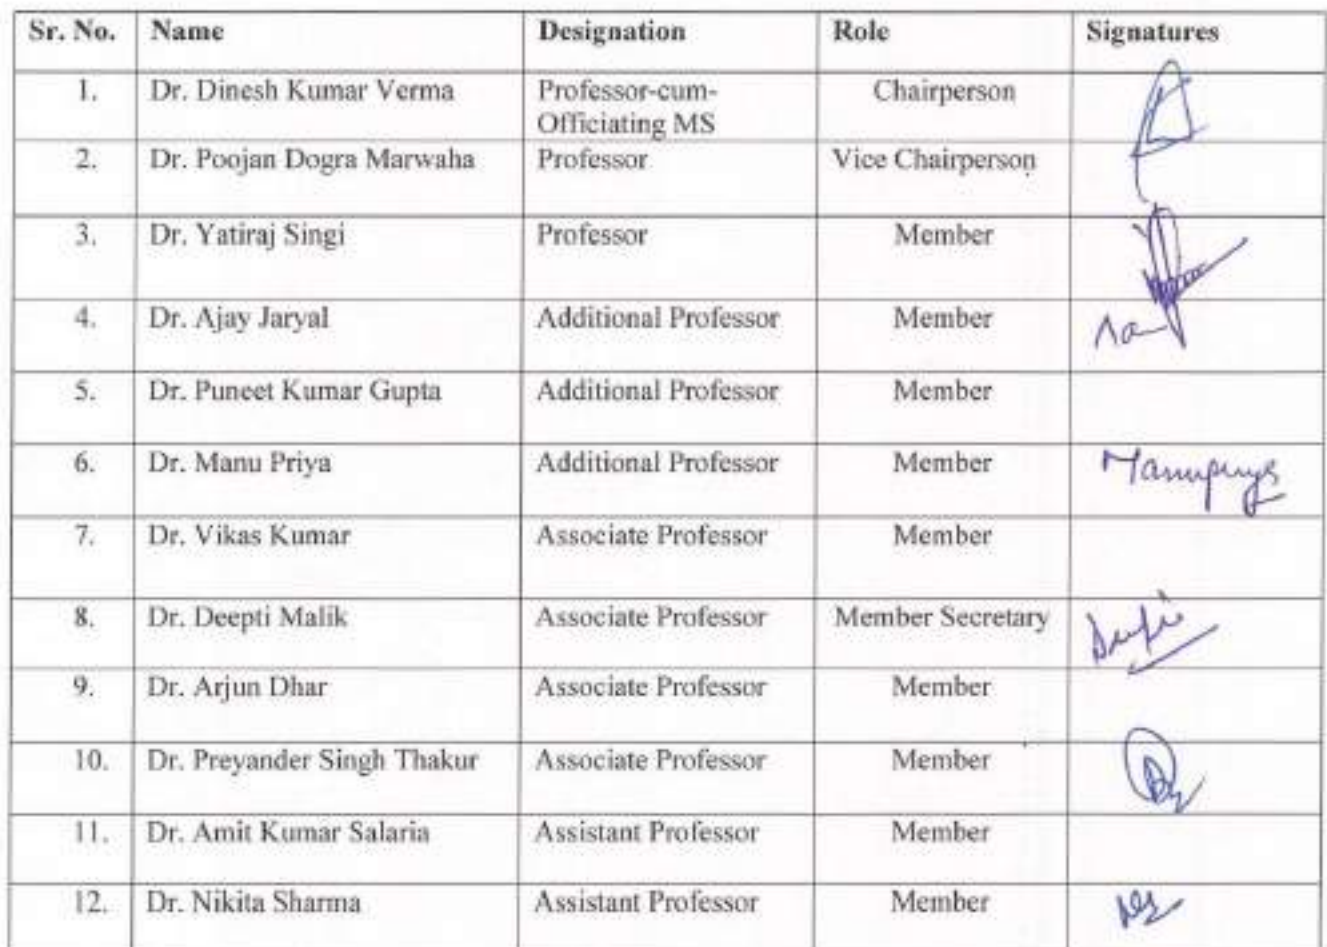 Sr. No. Name Designation Role Signatures
1. Dr. Dinesh Kumar Verma Professor-cum- Chairperson
Officiating MS
2. Dr. Poojan Dogra Marwaha Professor Vice Chairperson
3. Dr. Yatiraj Singi Professor Member
4. Dr. Ajay Jaryal Additional Professor Member
5. Dr. Puneet Kumar Gupta Additional Professor Member
6. Dr. Manu Priya Additional Professor Member Manupriya
7. Dr. Vikas Kumar Associate Professor Member
8. Dr. Deepti Malik Associate Professor Member Secretary
9. Dr. Arjun Dhar Associate Professor Member
10. Dr. Preyander Singh Thakur Associate Professor Member
11. Dr. Amit Kumar Salaria Assistant Professor Member
12. Dr. Nikita Sharma Assistant Professor Member